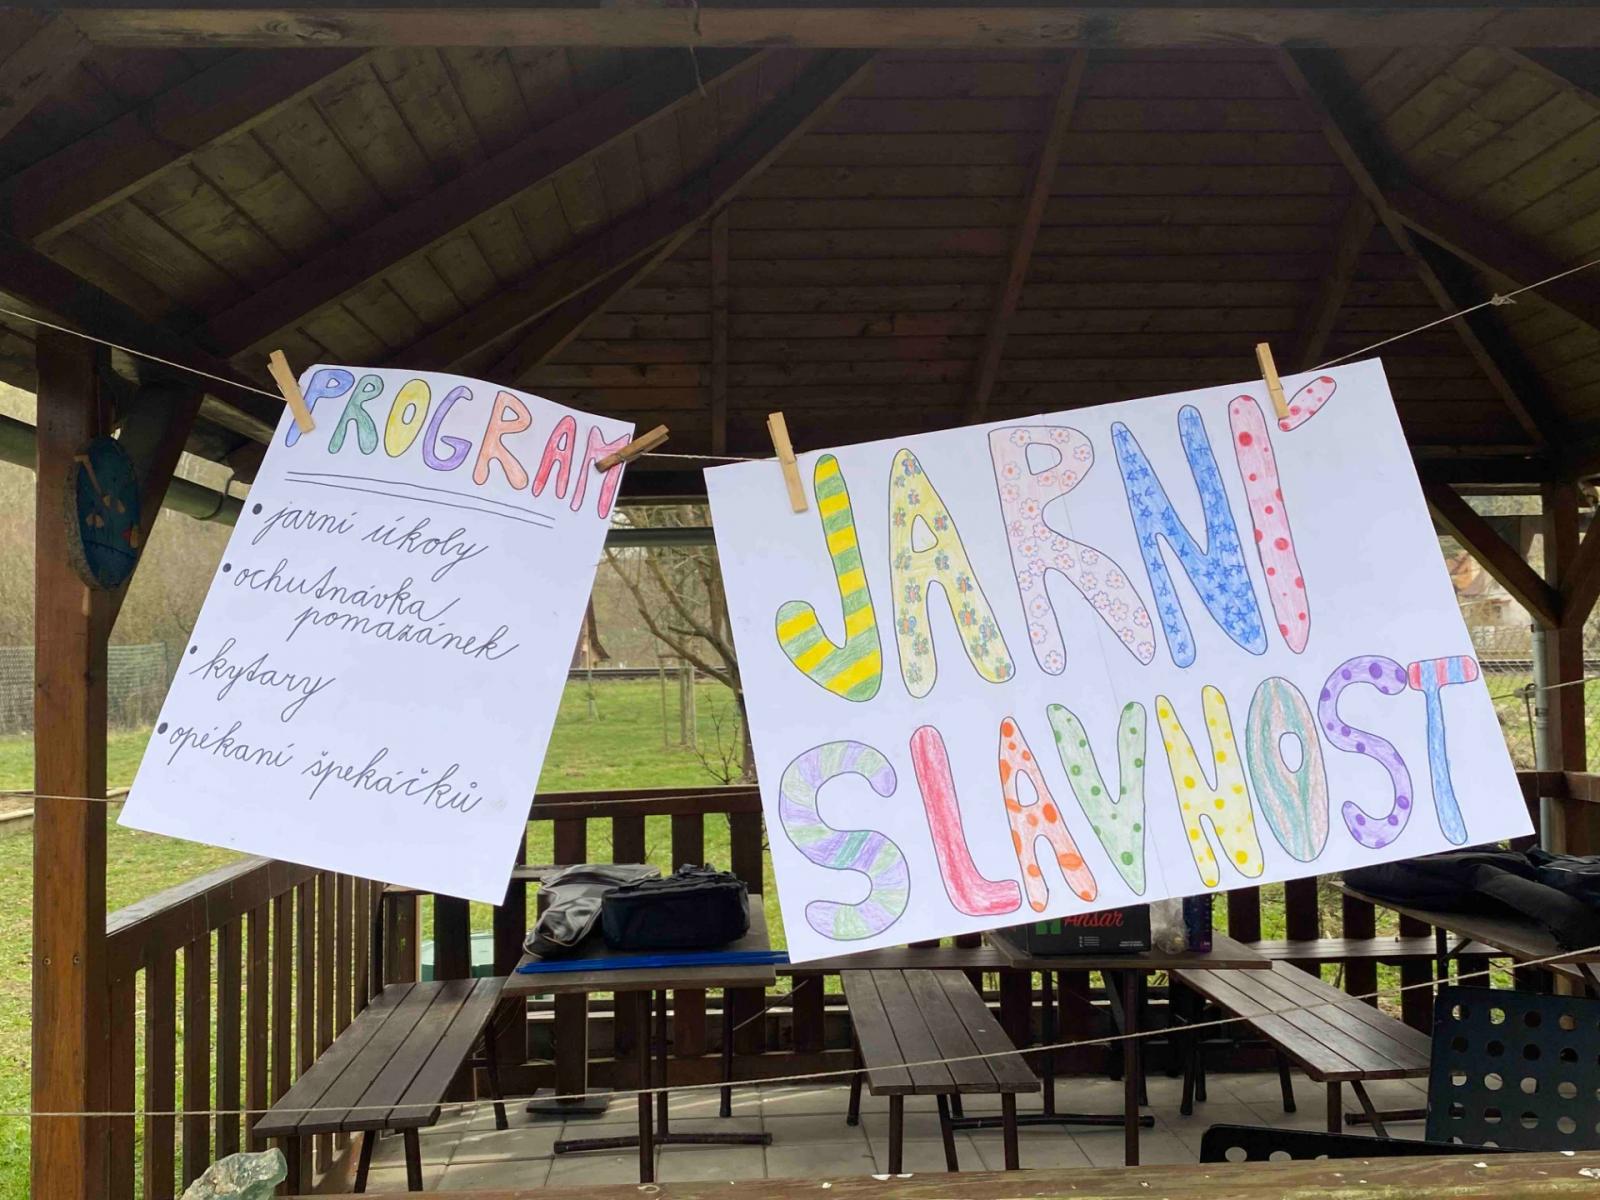 PROGRAM
• jarní úkoly
• ochutnávka
pomazánek
• kytary
• opékaní špekáčků
JARNÍ
SLAVNOST
Ansar